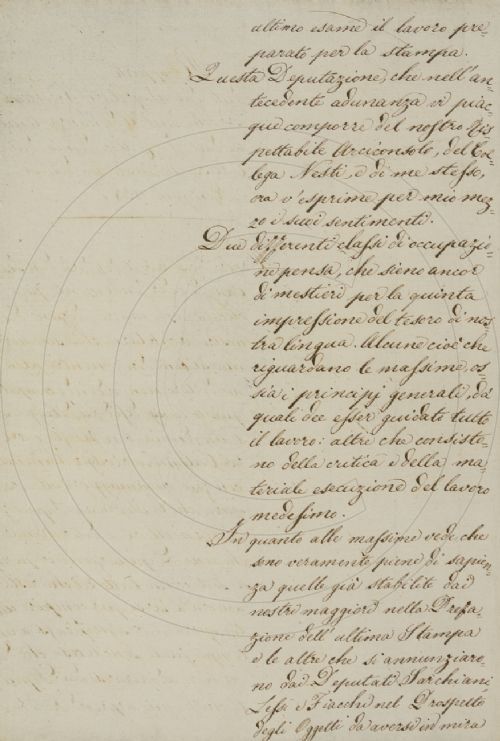 ultimo esame il lavoro pre=
parato per la stampa.
Questa Deputazione, che nell'an=
tecedente adunanza vi piac=
que comporre del nostro Ris
pettabile Arciconsolo, del Col
lega Nesti, e di me stesso,
ora v'esprime per mio mez
zo i suoi sentimenti.
Due differenti classi di occupazio=
ne pensa, che sieno ancor
di mestieri per la quinta
impressione del tesoro di nos
tra lingua. Alcune cioè che
riguardano le massime, os
sia i principj generali, da'
quali dee esser guidato tutto
il lavoro: altre che consisto=
no della critica e della ma=
teriale esecuzione del lavoro
medesimo.
In quanto alle massime vede che
sono veramente piene di sapien
za quelle già stabilite dai
nostri maggiori nella Prefa=
zione dell'ultima Stampa
e le altre che si annunziaro=
no dai Deputati Sarchiani,
Lessi e Fiacchi nel Prospetto
degli Oggetti da aversi in mira